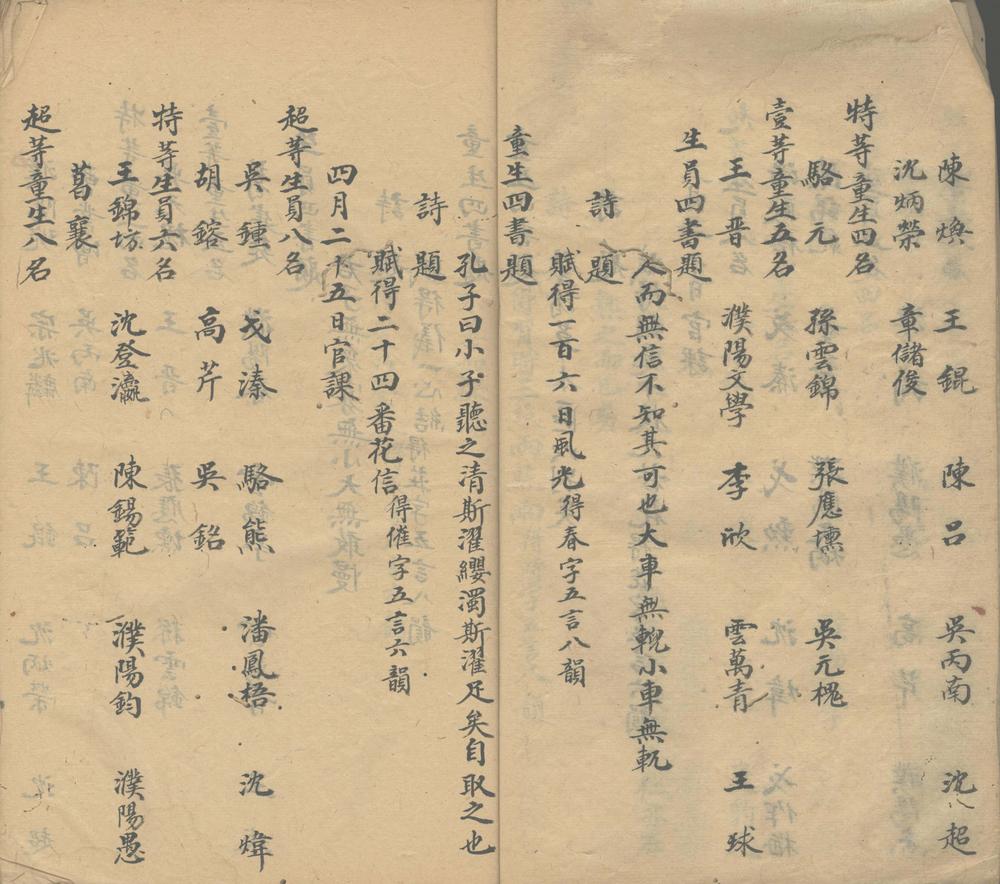 陳煥 王錕 陳呂 吳丙南 沈超
沈炳榮 章儲俊
特等童生四名
駱元 孫雲錦 張應壎 吳元槐
壹等童生五名
王晋 濮陽文學 李欣 雲萬青 王球
生員四書題
人而無信不知其可也大車無輗小車無軏
詩題
賦得一百六日風光得春字五言八韻
童生四書題
孔子曰小子聽之清斯濯纓濁斯濯足矣自取之也
詩題
賦得二十四番花信得催字五言六韻
四月二十五日官課
超等生員八名
吳鍾 戈溱 駱熊 潘鳳梧 沈煒
胡鎔 高芹 吳銘
特等生員六名
王錦坊 沈登瀛 陳錫範 濮陽鈞 濮陽愚
葛襄
超等童生八名